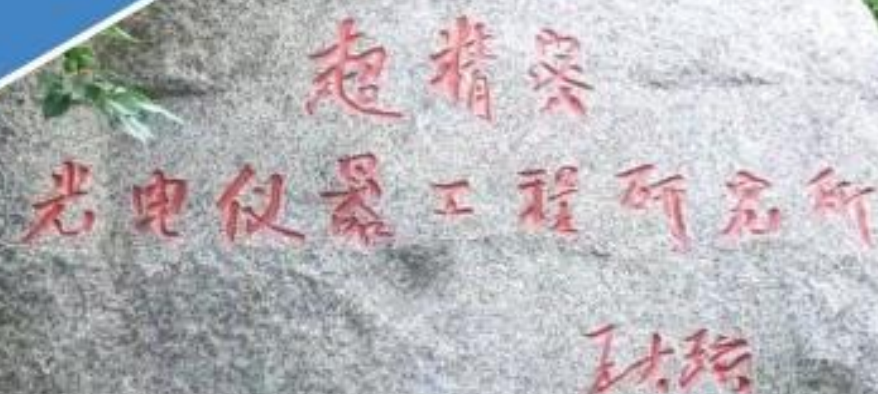 超精密
光电仪器工程研究所
王大珩